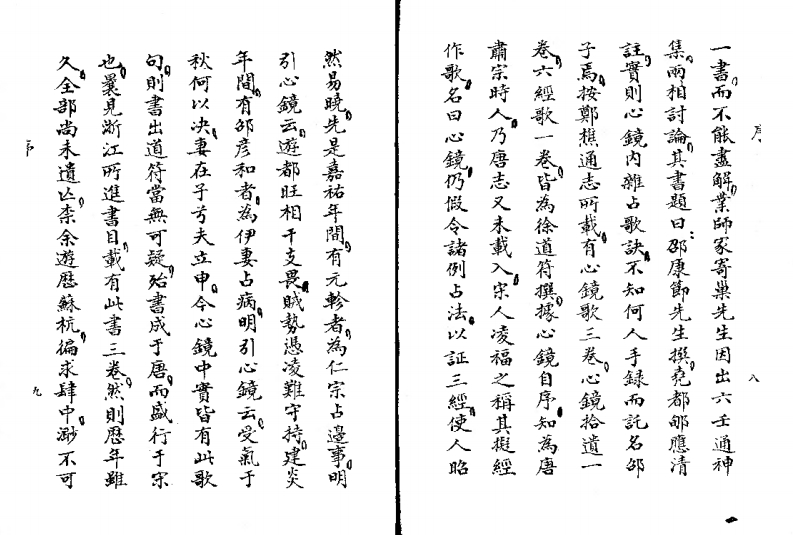 序
一書而不能盡解業師冢寄巢先生因出六壬通神
集兩相討論其書題曰邵康節先生撰堯都邮應清
註實則心鏡內雜占歌訣不知何人手錄而託名邵
子焉按鄭樵通志所載有心鏡歌三卷心鏡拾遺一
卷六經歌一卷皆為徐道符撰據心鏡自序知為唐
肅宗時人乃唐志又未載入宋人凌福之稱其擬經
作歌名曰心鏡仍假令諸例占法以証三經使人昭
八
然易曉先是嘉祐年間有元軫者為仁宗占邊事明
引心鏡云遊都旺相干支畏賊勢憑凌難守持建炎
年間有邵彥和者為伊妻占病明引心鏡云受氣于
秋何以決妻在子兮夫立申今心鏡中實皆有此歌
句則書出道符當無可疑殆書成于唐而盛行于宋
也曩見浙江所進書目載有此書三卷然則歷年雖
久全部尚未遺亾柰余遊歷蘇杭徧求肆中渺不可
序
九